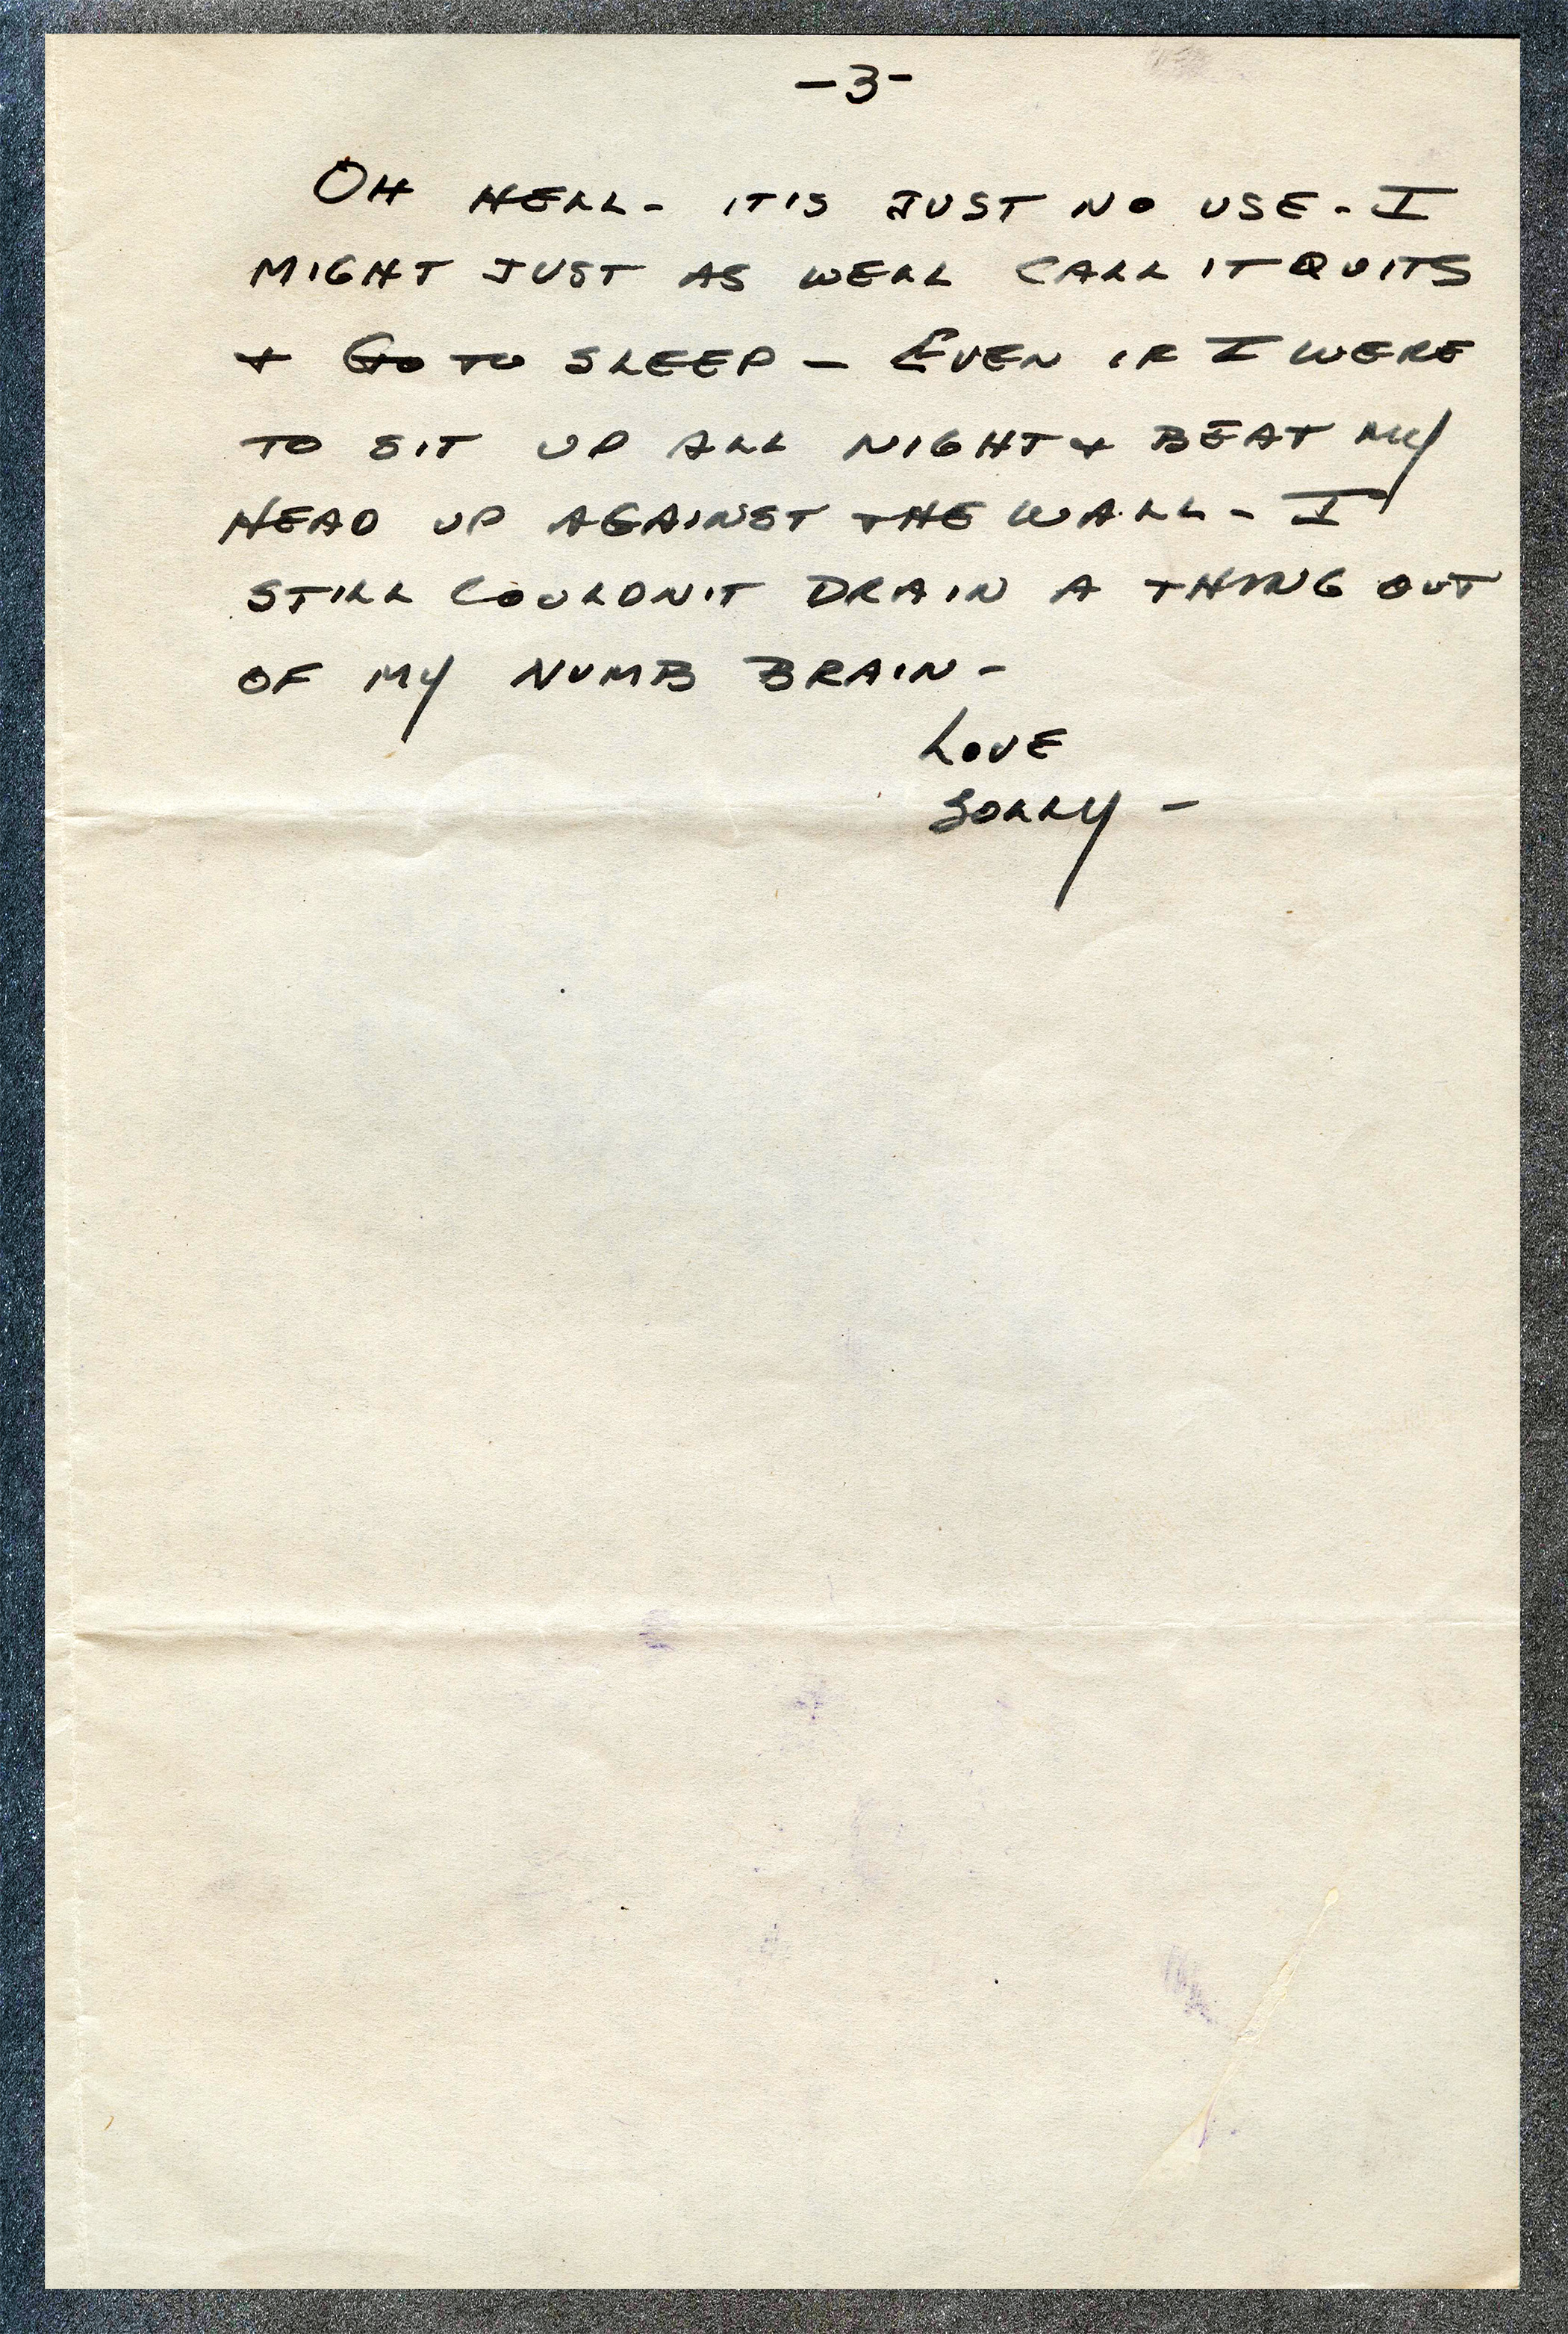 -3-
OH HELL - IT'S JUST NO USE - I
MIGHT JUST AS WELL CALL IT QUITS
+ GO TO SLEEP - EVEN IF I WERE
TO SIT UP ALL NIGHT + BEAT MY
HEAD UP AGAINST THE WALL - I
STILL COULDN'T DRAIN A THING OUT
OF MY NUMB BRAIN -
LOVE
SOLLY -